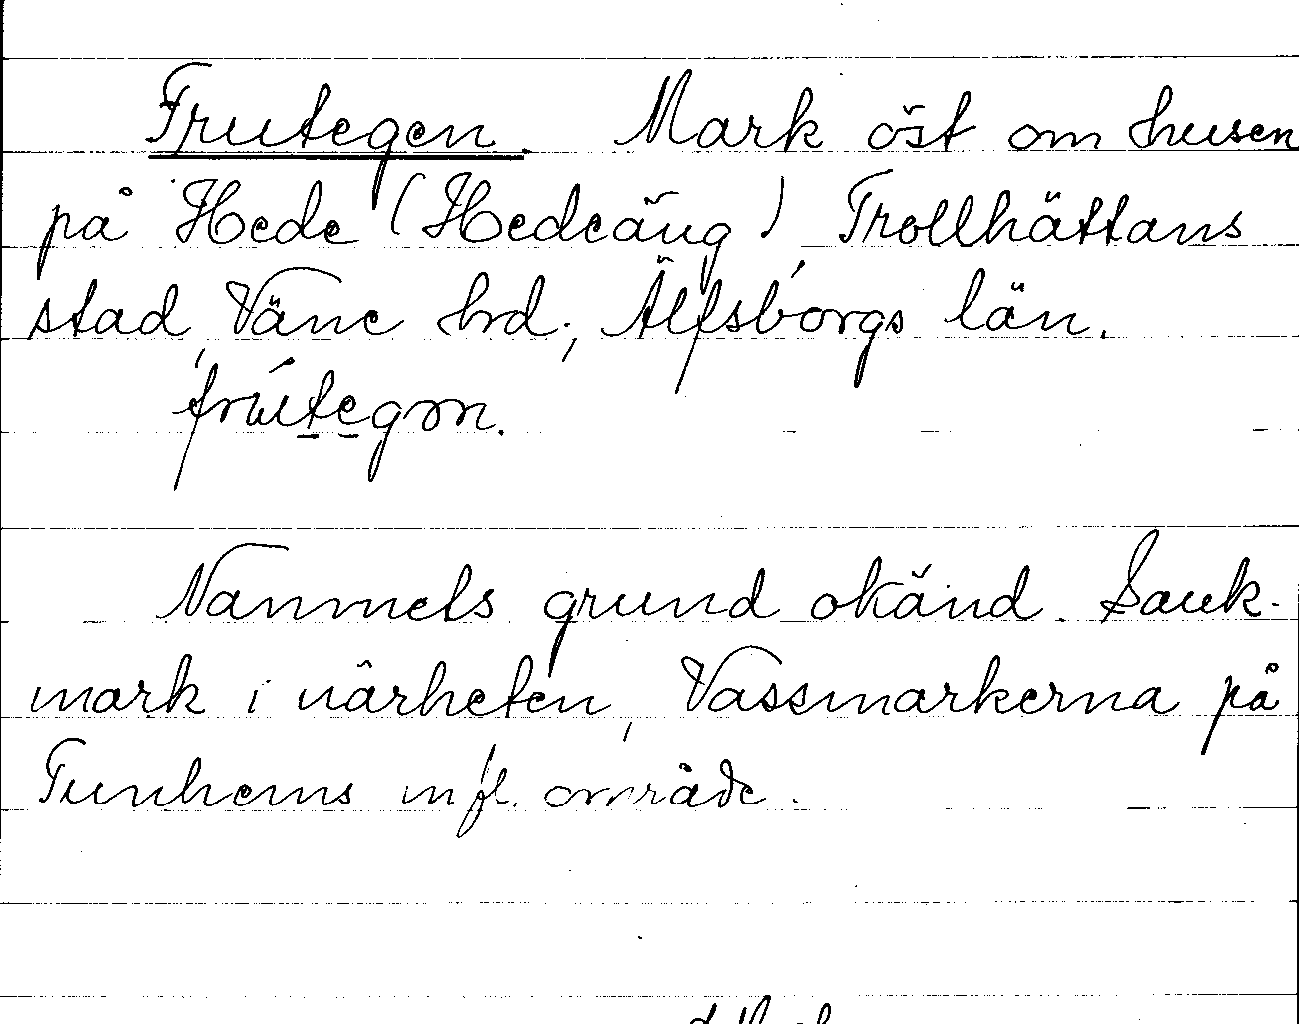 Frutegen. Mark öst om husen
på Hede (Hedeäng) Trollhättans
stad, Väne hrd., Älfsborgs län.
frútegɔn.
Namnets grund okänd. Sank-
mark i närheten, Vassmarkerna på
Tunhems m fl. område.